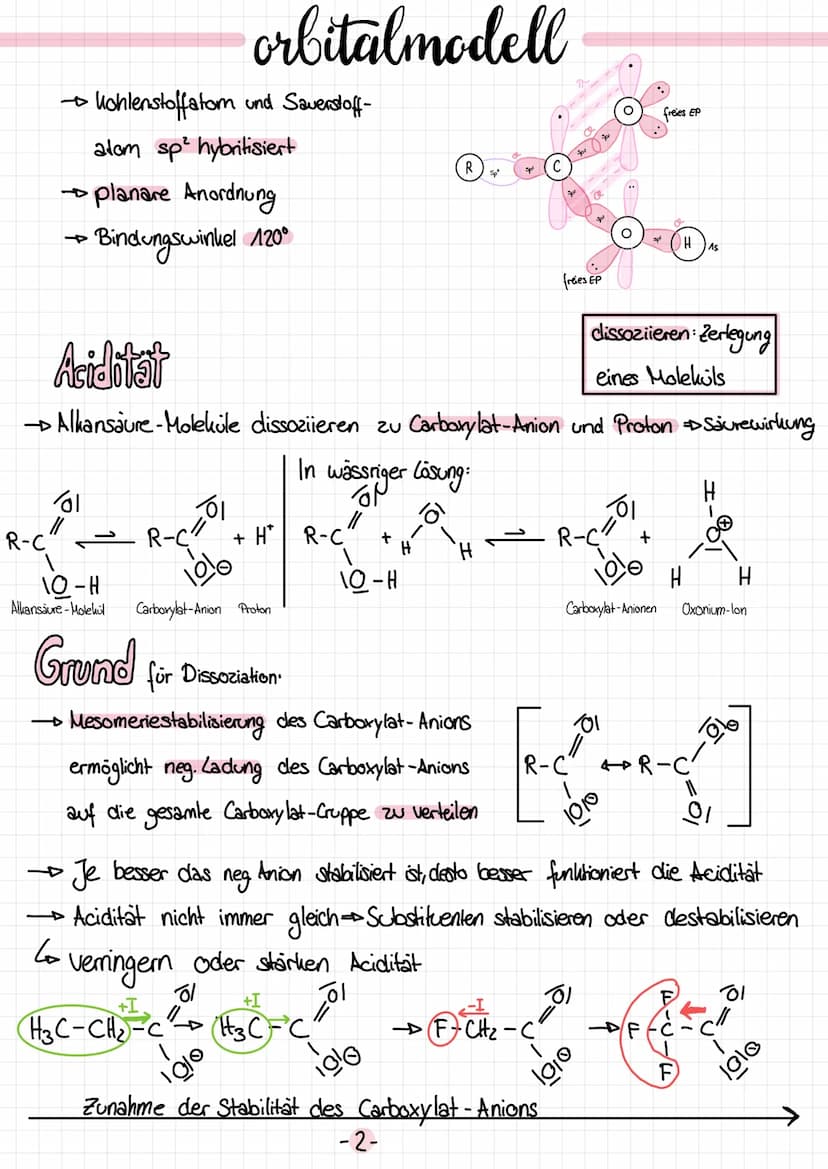 orbitalmodell
→ Kohlenstoffatom und Sauerstoff-
atom sp² hybritisiert
→ planare Anordnung
→ Bindungswinkel 120°
R sp³ σ sp² C sp² σ sp² O freies EP
π
sp² σ sp² O sp² σ H 1s
freies EP
dissoziieren: Zerlegung
eines Moleküls
Acidität
→ Alkansäure-Moleküle dissoziieren zu Carboxylat-Anion und Proton ⇒ Säurewirkung
In wässriger Lösung:
R-C O O-H ⇌ R-C O O⊖ + H⁺
R-C O O-H + H O H ⇌ R-C O O⊖ + H O⊕ H H
Alkansäure-Molekül Carboxylat-Anion Proton
Carboxylat-Anionen Oxonium-Ion
Grund für Dissoziation:
→ Mesomeriestabilisierung des Carboxylat-Anions
ermöglicht neg. Ladung des Carboxylat-Anions
auf die gesamte Carboxylat-Gruppe zu verteilen
[R-C O O⊖ ↔ R-C O⊖ O]
→ Je besser das neg Anion stabilisiert ist, desto besser funktioniert die Acidität
→ Acidität nicht immer gleich ⇒ Substituenten stabilisieren oder destabilisieren
↳ verringern oder stärken Acidität
+I +I -I
H₃C-CH₂-C O O⊖ → H₃C-C O O⊖ → F-CH₂-C O O⊖ → F F-C-C F O O⊖
Zunahme der Stabilität des Carboxylat-Anions
-2-